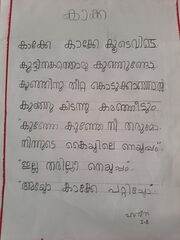 കാക്ക
കാക്കേ കാക്കേ കൂടെവിടെ
കൂട്ടിനകത്തൊരു കുഞ്ഞുണ്ടോ
കുഞ്ഞിനു തീറ്റ കൊടുക്കാഞ്ഞാൽ
കുഞ്ഞു കിടന്നു കരഞ്ഞീടും
"കുഞ്ഞേ കുഞ്ഞേ നീ തരുമോ
നിന്നുടെ കൈയ്യിലെ നെയ്യപ്പം
"ഇല്ല തരില്ലാ നെയ്യപ്പം
"അയ്യോ കാക്കേ പറ്റിച്ചേ